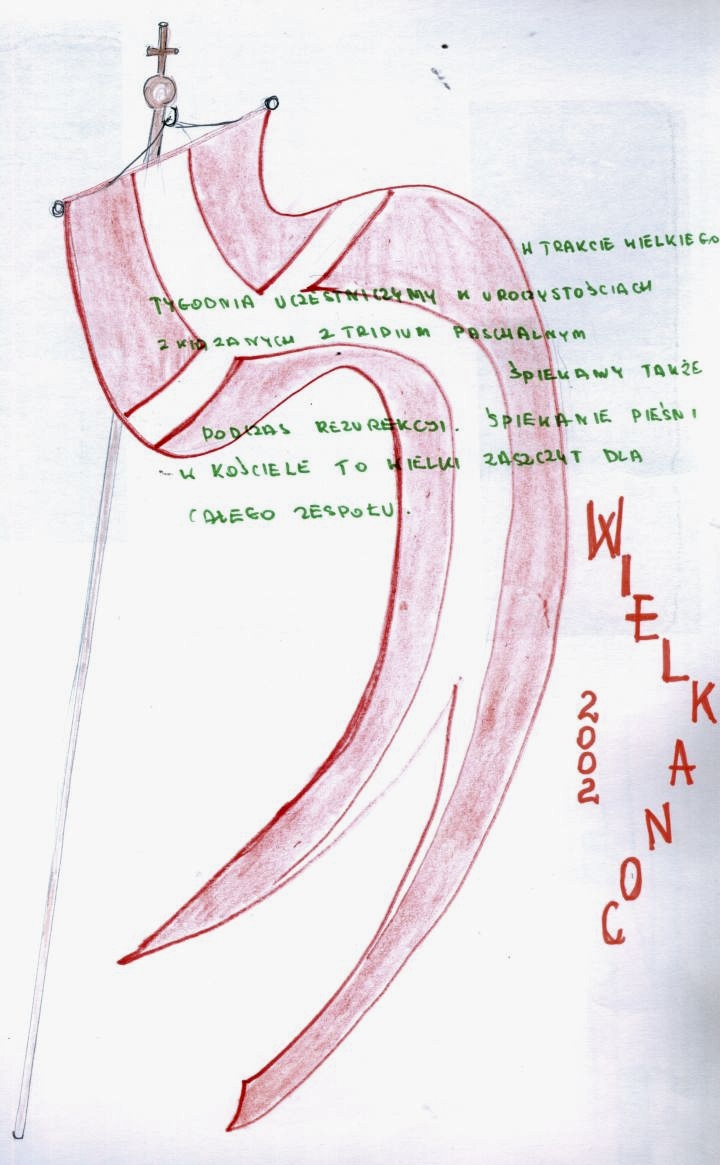 W TRAKCIE WIELKIEGO
TYGODNIA UCZESTNICZYMY W UROCZYSTOŚCIACH
ZWIĄZANYCH Z TRIDIUM PASCHALNYM
ŚPIEWAMY TAKŻE
PODCZAS REZUREKCJI. ŚPIEWANIE PIEŚNI
W KOŚCIELE TO WIELKI ZASZCZYT DLA
CAŁEGO ZESPOŁU.
WIELKANOC
2002